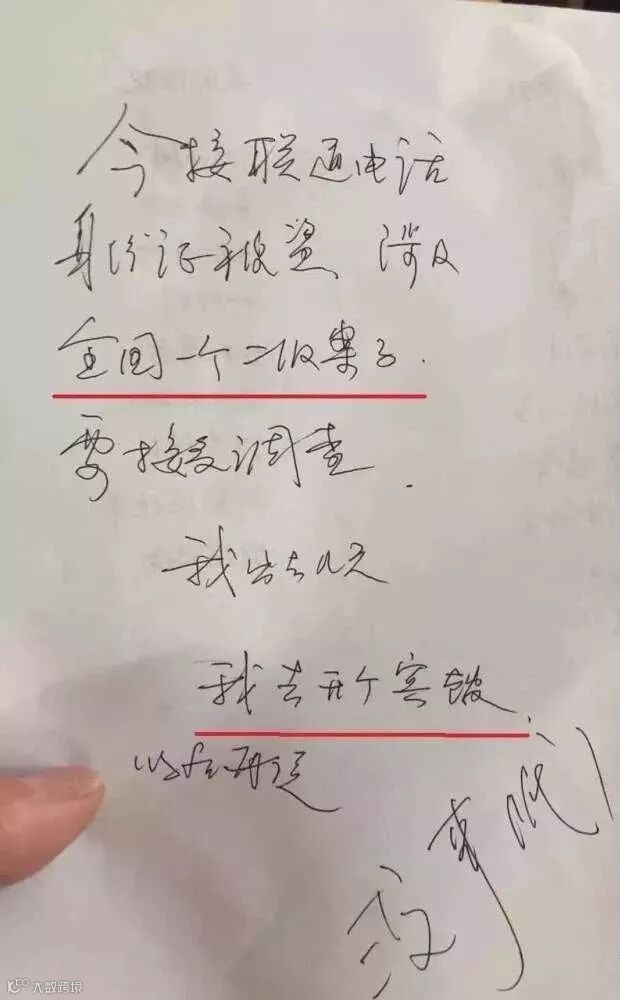 今接联通电话
身份证被盗、涉及
全国一个二级案子.
要接受调查.
我出去几天
我去开个宾馆、
以后再说
大数跨境